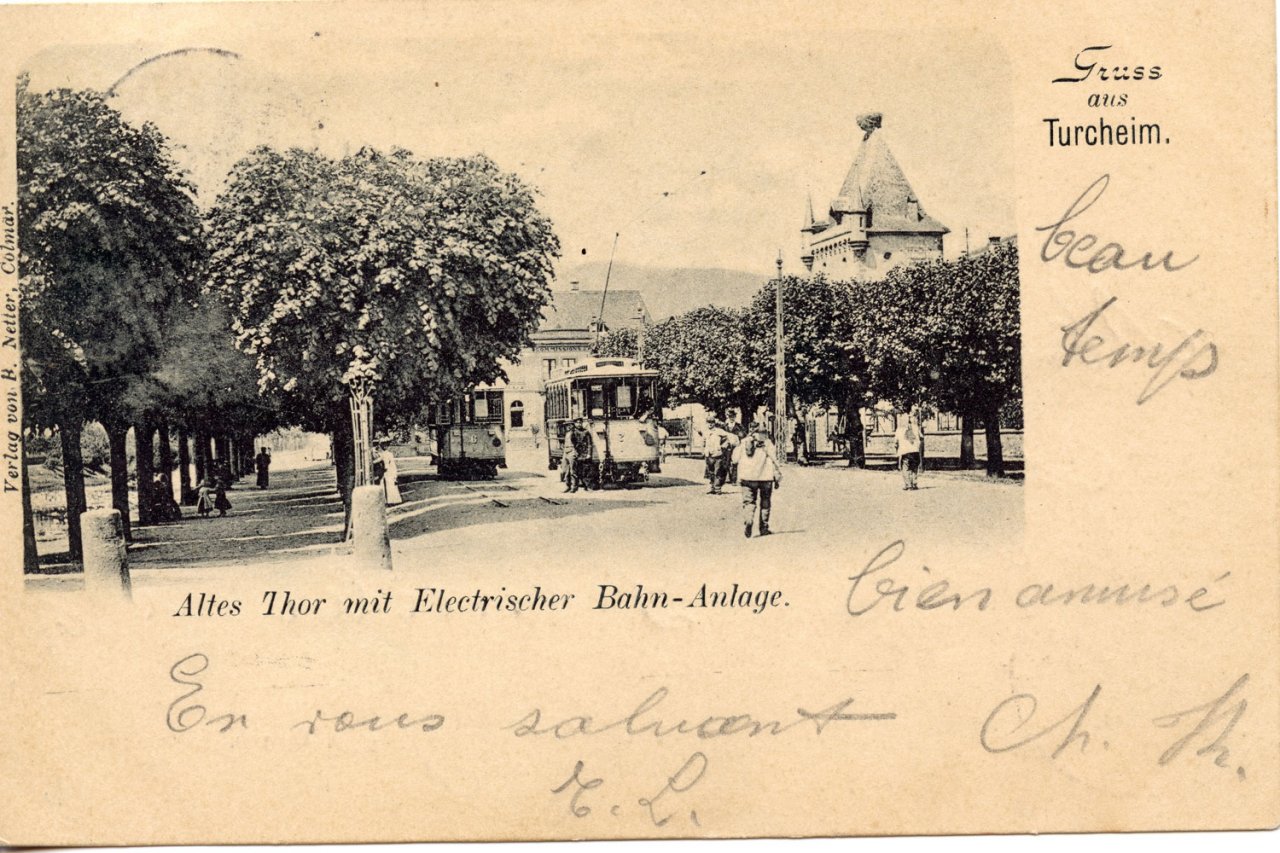 Gruss
aus
Turcheim.
beau
temps
Verlag von R. Netter, Colmar.
6
2
Altes Thor mit Electrischer Bahn-Anlage.
bien amusé
En vous saluant
Ch.
L.